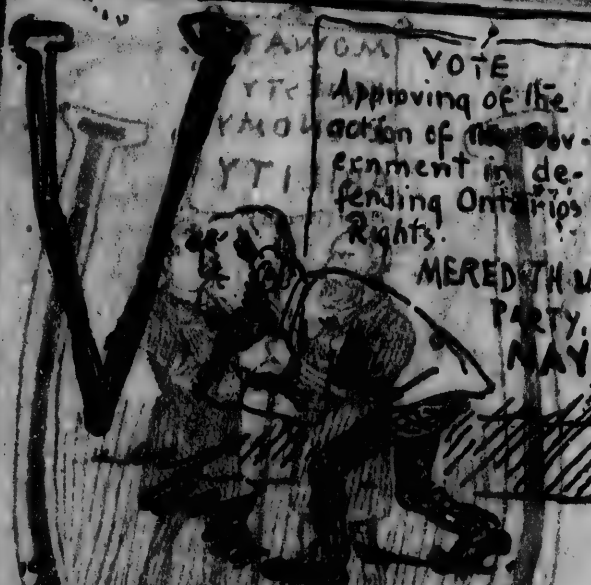 V
VOTE
Approving of the
action of the Gov-
ernment in de-
fending Ontario's
Rights.
MEREDITH
PARTY,
MAY